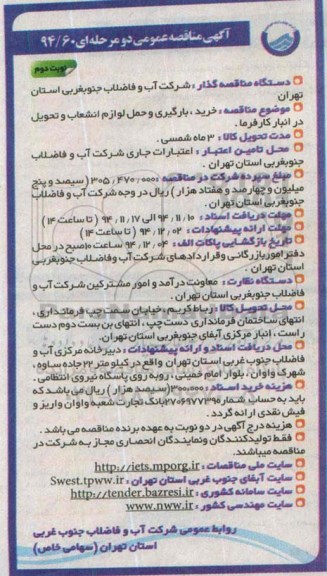 آگهی مناقصه عمومی دو مرحله ای ۹۴/۶۰
نوبت دوم
دستگاه مناقصه گذار : شرکت آب و فاضلاب جنوبغربی استان
تهران
موضوع مناقصه : خرید ، بارگیری و حمل لوازم انشعاب و تحویل
در انبار کارفرما .
مدت تحویل کالا : ۳ ماه شمسی .
محل تامین اعتبار : اعتبارات جاری شرکت آب و فاضلاب
جنوبغربی استان تهران .
مبلغ سپرده شرکت در مناقصه : ۳۰۵،۴۷۰،۰۰۰ ( سیصد و پنج
میلیون و چهارصد و هفتاد هزار ) ریال در وجه شرکت آب و فاضلاب
جنوبغربی استان تهران .
مهلت دریافت اسناد : ۹۴/۱۱/۱۰ الی ۹۴/۱۱/۱۷ ( تا ساعت ۱۴ )
مهلت ارائه پیشنهادات : ۹۴/۱۲/۰۲ ( تا ساعت ۱۴ )
تاریخ بازگشایی پاکات الف : ۹۴/۱۲/۰۴ ساعت ۱۰ صبح در محل
دفتر امور بازرگانی و قراردادهای شرکت آب و فاضلاب جنوبغربی
استان تهران .
دستگاه نظارت : معاونت درآمد و امور مشترکین شرکت آب و
فاضلاب جنوبغربی استان تهران .
محل تحویل کالا : رباط کریم ، خیابان سمت چپ فرمانداری ،
انتهای ساختمان فرمانداری دست چپ ، انتهای بن بست دوم دست
راست ، انبار مرکزی آبفای جنوبغربی استان تهران.
محل دریافت اسناد و ارائه پیشنهادات : دبیرخانه مرکزی آب و
فاضلاب جنوب غربی استان تهران واقع در کیلومتر ۲۲ جاده ساوه ،
شهرک واوان ، بلوار امام خمینی ، روبه روی پاسگاه نیروی انتظامی .
هزینه خرید اسناد : ۳۰۰،۰۰۰ (سیصد هزار ) ریال می باشد که
باید به حساب شماره ۲۷۰۶۹۷۷۳۹۰ بانک تجارت شعبه واوان واریز و
فیش نقدی ارائه گردد .
هزینه درج آگهی در دو نوبت به عهده برنده مناقصه می باشد .
فقط تولیدکنندگان ونمایندگان انحصاری مجاز به شرکت در
مناقصه میباشند.
سایت ملی مناقصات : http://iets.mporg.ir
سایت آبفای جنوب غربی استان تهران : Swest.tpww.ir
سایت سامانه کشوری : http://tender.bazresi.ir
سایت مهندسی کشور : www.nww.ir
روابط عمومی شرکت آب و فاضلاب جنوب غربی
استان تهران (سهامی خاص)